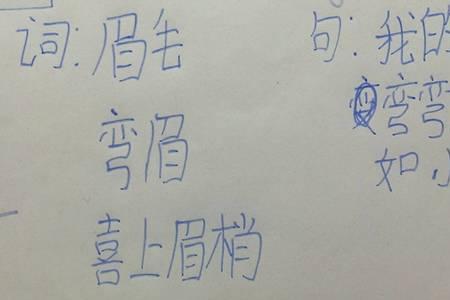 词：眉毛
弯眉
喜上眉梢
句：我的
弯弯
如